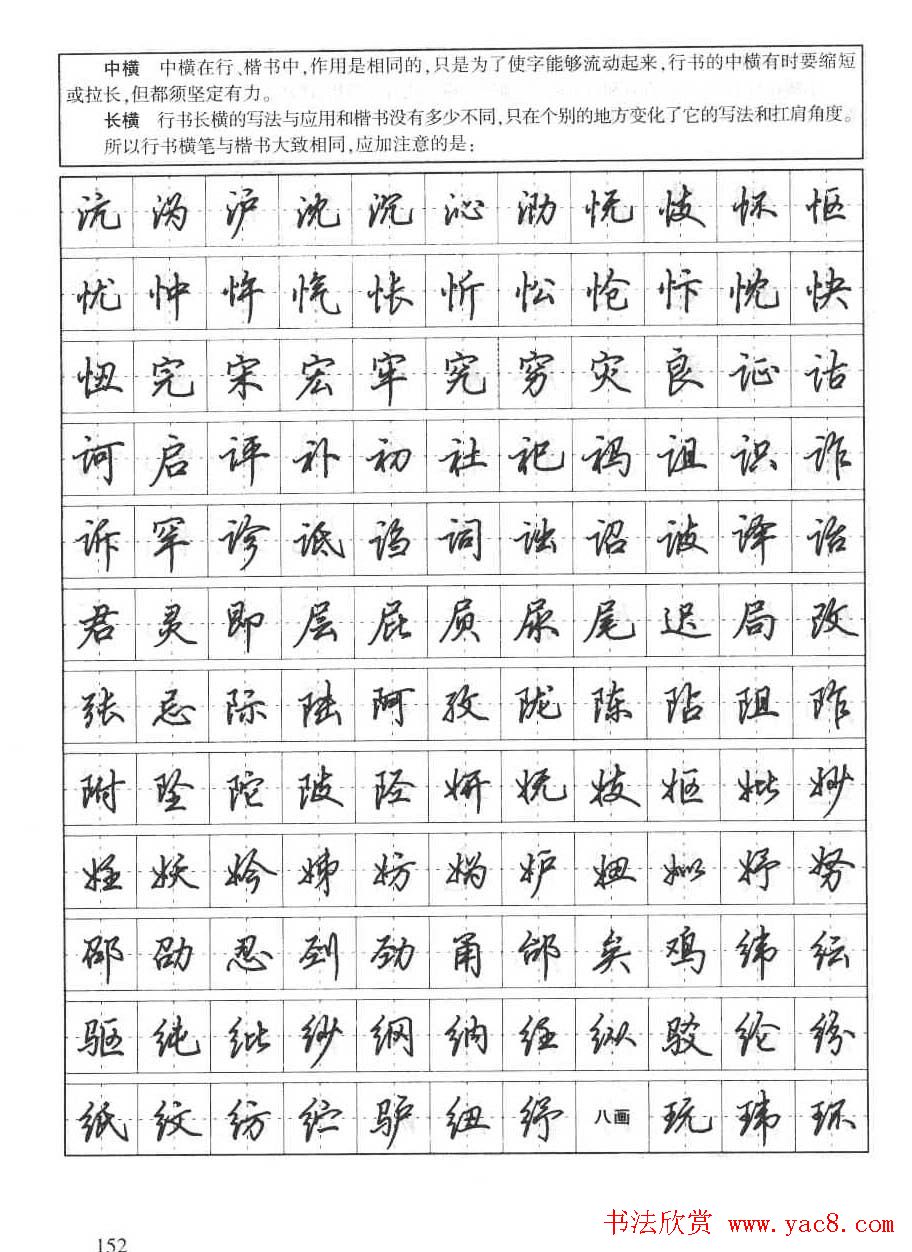 中横 中横在行、楷书中,作用是相同的,只是为了使字能够流动起来,行书的中横有时要缩短
或拉长,但都须坚定有力。
长横 行书长横的写法与应用和楷书没有多少不同,只在个别的地方变化了它的写法和扛肩角度。
所以行书横笔与楷书大致相同,应加注意的是:
沆 沩 沪 沈 沉 沁 泐 怃 忮 怀 怄
忧 忡 忤 忾 怅 忻 忪 怆 忭 忱 快
忸 完 宋 宏 牢 究 穷 灾 良 证 诂
诃 启 评 补 初 社 祀 祃 诅 识 诈
诉 罕 诊 诋 诌 词 诎 诏 诐 译 诒
君 灵 即 层 屁 屃 尿 尾 迟 局 改
张 忌 际 陆 阿 孜 陇 陈 阽 阻 阼
附 坠 陀 陂 陉 妍 妩 妓 妪 妣 妙
妊 妖 妗 姊 妨 妫 妒 妞 姒 妤 努
邵 劭 忍 刭 劲 甬 邰 矣 鸡 纬 纭
驱 纯 纰 纱 纲 纳 纴 纵 驳 纶 纷
纸 纹 纺 纻 驴 纽 纾 八画 玩 玮 环
152
书法欣赏 www.yac8.com